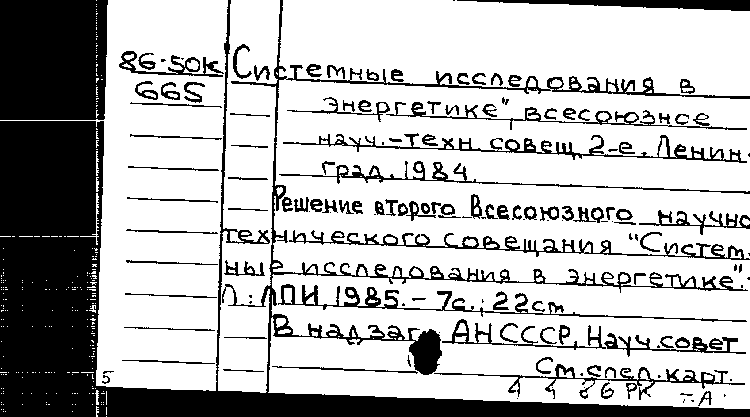 86-50к Системные исследования в
665 энергетике", всесоюзное
науч.-техн. совещ. 2-е. Ленин-
град. 1984.
Решение второго Всесоюзного научно
технического совещания "Систем-
ные исследования в энергетике".-
Л.: ЛПИ, 1985. - 7с.; 22см.
В надзаг. АН СССР, Науч. совет
См. след. карт.
5 4 4 86 РК т.А